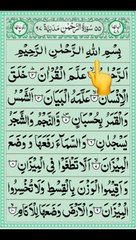 ٥٥ سُوْرَةُ الرَّحْمٰنِ مَدَنِيَّةٌ ٩٧
بِسْمِ اللّٰهِ الرَّحْمٰنِ الرَّحِيْمِ
عَلَّمَ الْقُرْاٰنَ خَلَقَ
الْاِنْسَانَ عَلَّمَهُ الْبَيَانَ اَلشَّمْسُ
وَالْقَمَرُ بِحُسْبَانٍ وَّالنَّجْمُ وَالشَّجَرُ
يَسْجُدٰنِ وَالسَّمَآءَ رَفَعَهَا وَوَضَعَ
الْمِيْزَانَ اَلَّا تَطْغَوْا فِي الْمِيْزَانِ
وَاَقِيْمُوا الْوَزْنَ بِالْقِسْطِ وَلَا تُخْسِرُوا
الْمِيْزَانَ وَالْاَرْضَ وَضَعَهَا لِلْاَنَامِ